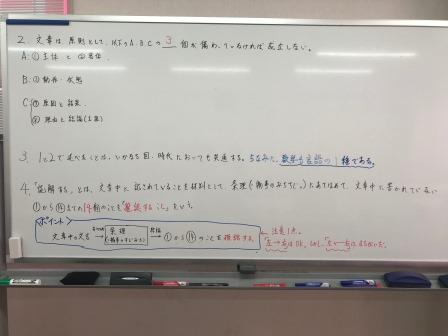 2. 文章は、原則として、以下のA.B.Cの 3 個が備わっていなければ成立しない。
A.① 主体 と ② 客体
B.① 動作・状態
C ① 原因と結果
② 理由と結論(主張)
3. 1と2で述べたことは、いかなる国、時代においても共通する。ちなみに、数学も言語の1種である。
4.「読解する」とは、文章中に記されていることを材料として、条理(=物事のみちすじ)にあてはめて、文章中に書かれていない
①から⑭までの14個のことを「推認すること」をいう。
<ポイント>
文章中の文言 → 条理 → ①から⑭のことを推認する。
(=物事のすじみち)
← 注意1点。
「左→右」はOK。しかし、「左←右」は